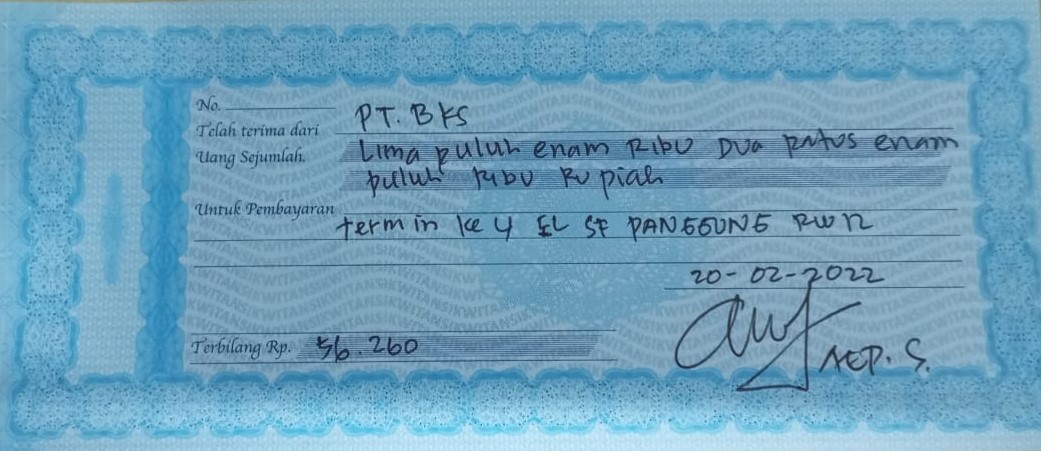 No.
Telah terima dari PT. BKS
Uang Sejumlah. Lima puluh enam Ribu Dua Ratus enam
puluh ribu Rupiah
Untuk Pembayaran
termin ke 4 EL SF PANGGUNG RW 12
20-02-2022
Terbilang Rp. 56.260
AEP. S.